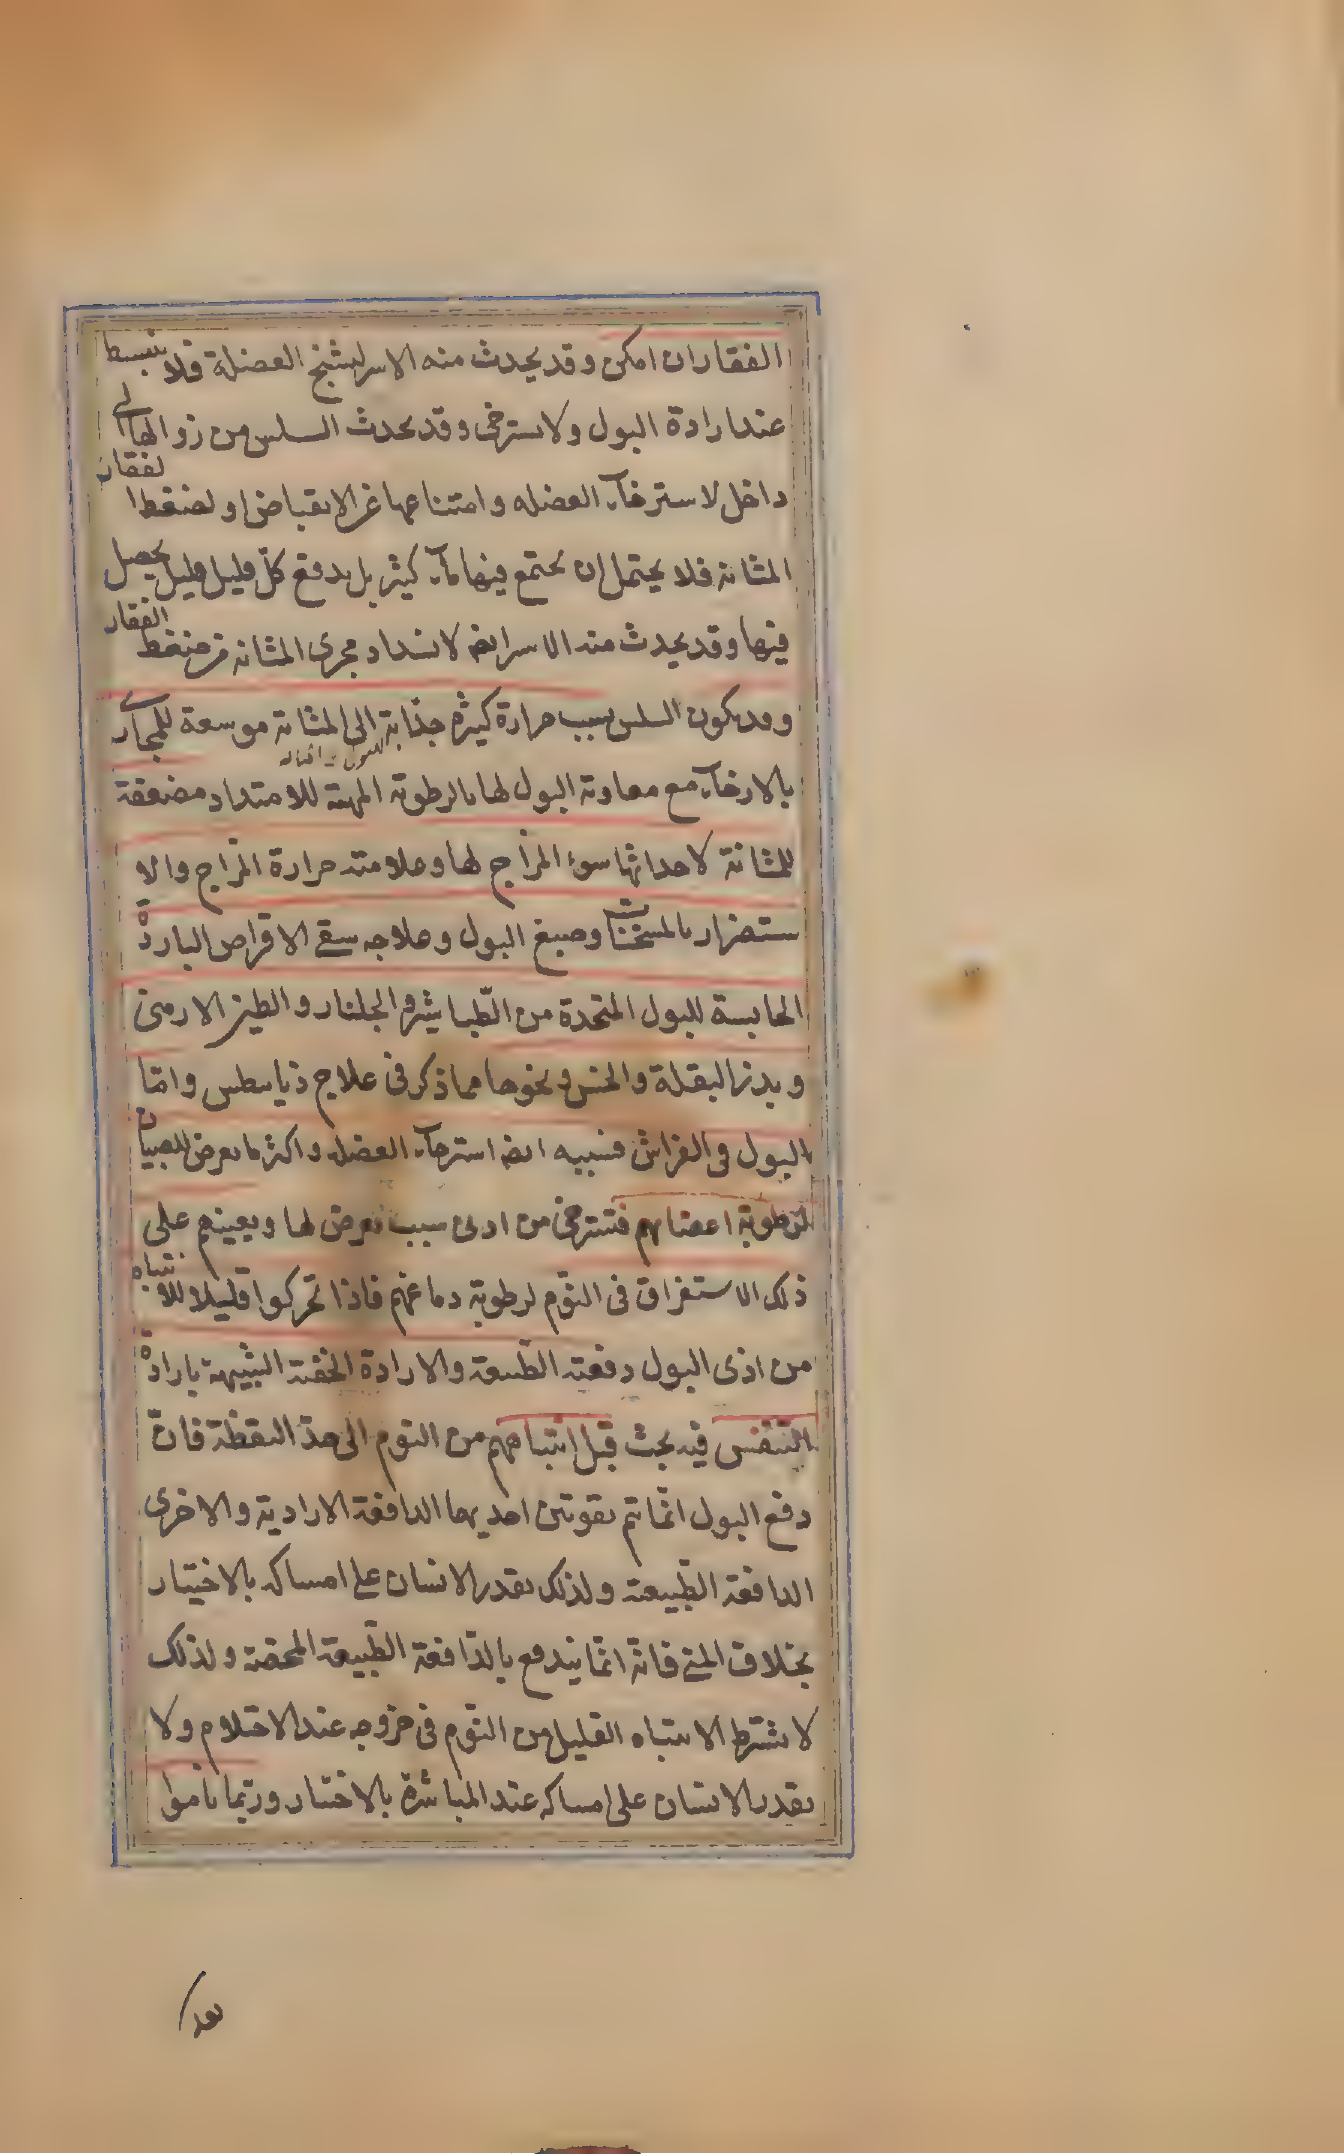 الفقار ان امكن وقد يحدث منه الاسر لتشنج العضلة فلا تنبسط
عند ارادة البول ولا تسترخى وقد يحدث السلس من زوالها الى
داخل لاسترخآء العضله وامتناعها عن الانقباض او لضغط الفقار
المثانه فلا يحتمل ان يجتمع فيها مآء كثير بل يدفع كل قليل قليل يحصل
فيها وقد يحدث منه الاسر ايضا لانسداد مجرى المثانه من ضغط الفقار
وقد يكون السلس بسبب حرارة كثيرة جذابة الى المثانة موسعة للمجارى
بالارخآء مع معاونة البول لها بالرطوبة المهيئة للامتداد مضعفة
للمثانة لاحداثها سوء المزاج لها وعلامته حرارة المزاج والا
ستضرار بالمسخنات وصبغ البول وعلاجه سقى الاقراص الباردة
الحابسة للبول المتخذة من الطباشير والجلنار والطين الارمنى
وبذر البقلة والخس ونحوها مما ذكر فى علاج ذيابيطس وامّا
البول فى الفراش فسببه ايضا استرخآء العضله واكثر ما يعرض للصبيان
لرطوبة اعضائهم فتسترخى من ادنى سبب يعرض لها ويعينهم على
ذلك الاستغراق فى النّوم لرطوبة دماغهم فاذا تحركوا قليلا للانتباه
من اذى البول دفعته الطبيعة والارادة الخفية الشبيهة بارادة
التنفس فيه بحث قبل انتباههم من النوم الى حدّ اليقظة فانّ
دفع البول انّما يتم بقوتين احديهما الدافعة الارادية والاخرى
الدافعة الطّبيعة ولذلك يقدر الانسان على امساكه بالاختيار
بخلاف المنى فانّه انّما يندفع بالدّافعة الطّبيعة المحضة ولذلك
لا يشترط الانتباه القليل من النّوم فى خروجه عند الاحتلام ولا
يقدر الانسان على امساكه عند المباشرة بالاختيار وربّما ناموا